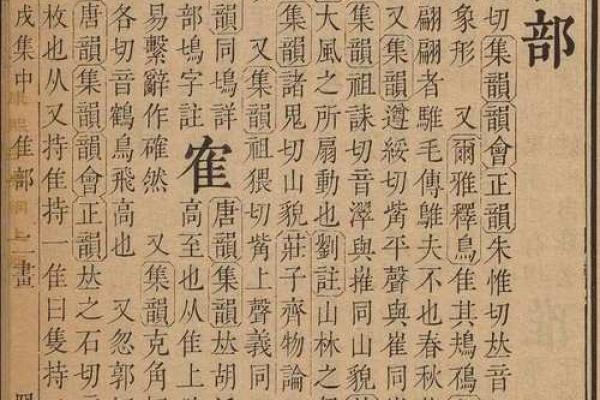 部
切集韻韻會正韻朱惟切𠀤音
象形 又爾雅釋鳥隹其鳺鴀
翩翩者鵻毛傳鵻夫不也春秋
又集韻遵綏切觜平聲與崔同
集韻祖誄切音濢與嶊同山貌
大風之所扇動也劉註山林之
集韻諸鬼切山貌莊子齊物論
又集韻祖猥切觜上聲義同
韻同塢詳
部塢字註
隺
唐韻集韻𠀤胡
高至也从隹上
易繫辭作確然 又集韻克角
各切音鶴鳥飛高也 又忽郭
唐韻集韻韻會正韻𠀤之石切
枚也从又持隹持一隹曰隻持
戌集中 隹部 二畫